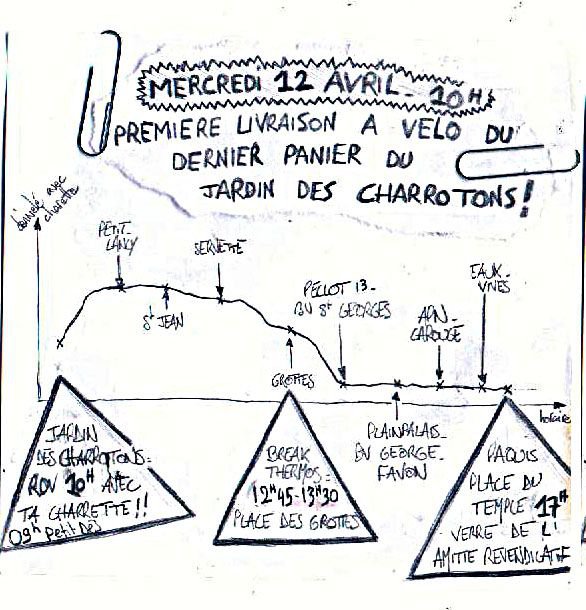 MERCREDI 12 AVRIL - 10H
PREMIERE LIVRAISON A VELO DU
DERNIER PANIER DU
JARDIN DES CHARROTONS!
avec
charette
PETIT-
LANCY
ST JEAN
SERVETTE
GROTTES
PELLOT 13-
BV ST GEORGES
PLAINPALAIS-
BV GEORGE-
FAVON
ARN-
CAROUGE
EAUX-
VIVES
horaire
JARDIN
DES CHARROTONS:
RDV 10H AVEC
TA CHARRETTE!!
09h Petit Dej
BREAK
THERMOS:
12H45-13H30
PLACE DES GROTTES
PAQUIS
PLACE DU
TEMPLE 17H
VERRE DE L'
AMITIE REVENDICATIF